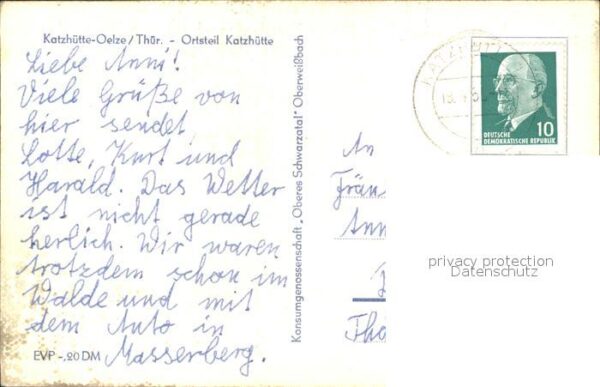 Katzhütte-Oelze/Thür. - Ortsteil Katzhütte
Liebe Anni!
Viele Grüße von
hier sendet
Lotte, Kurt und
Harald. Das Wetter
ist nicht gerade
herlich. Wir waren
trotzdem schon im
Walde und mit
dem Auto in
Masserberg.
EVP -,20 DM
Konsumgenossenschaft „Oberes Schwarzatal" Oberweißbach
10
DEUTSCHE
DEMOKRATISCHE REPUBLIK
An
Fräu
Ann
privacy protection
Datenschutz